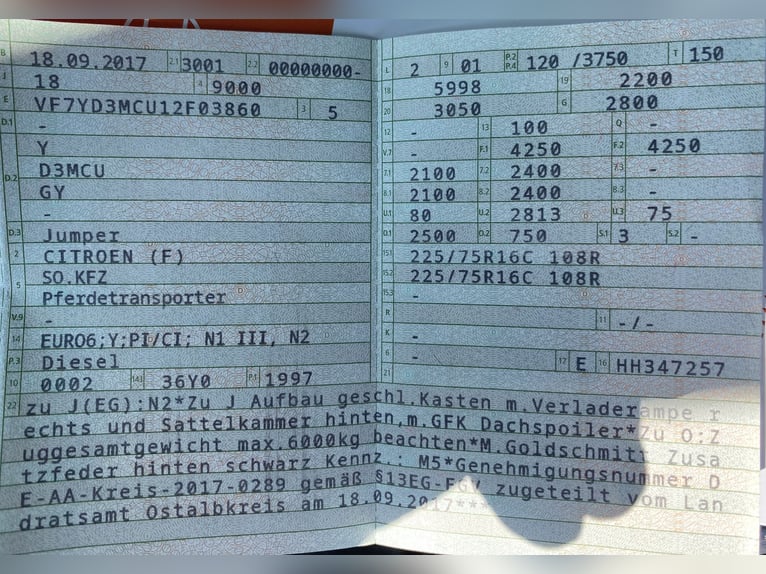 B 18.09.2017 2.1 3001 2.2 00000000-
J 18 4 9000
E VF7YD3MCU12F03860 3 5
D.1 -
Y
D.2 D3MCU
GY
-
D.3 Jumper
2 CITROEN (F)
5 SO.KFZ
Pferdetransporter
V.9 -
14 EURO6;Y;PI/CI; N1 III, N2
P.3 Diesel
10 0002 14.1 36Y0 P.1 1997
L 2 9 01 P.2 P.4 120 /3750 T 150
18 5998 19 2200
20 3050 G 2800
12 - 13 100 Q -
V.7 - F.1 4250 F.2 4250
7.1 2100 7.2 2400 7.3 -
8.1 2100 8.2 2400 8.3 -
U.1 80 U.2 2813 U.3 75
O.1 2500 O.2 750 S.1 3 S.2 -
15.1 225/75R16C 108R
15.2 225/75R16C 108R
15.3 -
R 11 -/-
K -
6 - 17 E 16 HH347257
21
22 zu J(EG):N2*Zu J Aufbau geschl.Kasten m.Verladerampe r
echts und Sattelkammer hinten,m.GFK Dachspoiler*Zu O:Z
uggesamtgewicht max.6000kg beachten*M.Goldschmitt Zusa
tzfeder hinten schwarz Kennz.: M5*Genehmigungsnummer D
E-AA-Kreis-2017-0289 gemäß §13EG-FGV zugeteilt vom Lan
dratsamt Ostalbkreis am 18.09.2017***